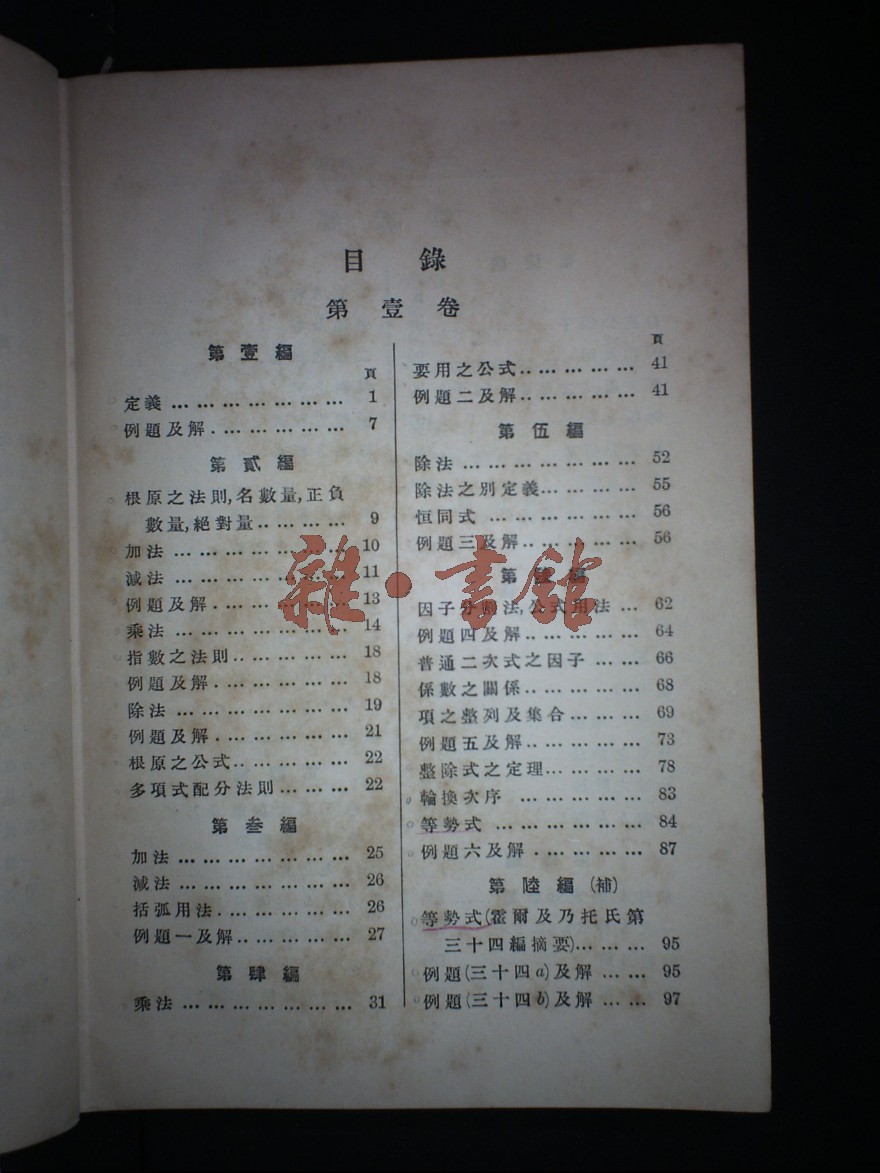 目錄
第壹卷
第壹編
頁
定義 … … … … … … … 1
例題及解 . … … … … … 7
第貳編
根原之法則,名數量,正負
數量,絕對量 .. … … … 9
加法 … … … … … … … 10
減法 … … … … … … … 11
例題及解 . … … … … … 13
乘法 … … … … … … … 14
指數之法則 .. … … … … 18
例題及解 . … … … … … 18
除法 … … … … … … … 19
例題及解 . … … … … … 21
根原之公式 .. … … … … 22
多項式配分法則 … … … 22
第叁編
加法 … … … … … … … 25
減法 … … … … … … … 26
括弧用法 . … … … … … 26
例題一及解 .. … … … … 27
第肆編
乘法 … … … … … … … 31
頁
要用之公式 .. … … … … 41
例題二及解 .. … … … … 41
第伍編
除法 … … … … … … … 52
除法之別定義 … … … … 55
恒同式 … … … … … … 56
例題三及解 .. … … … … 56
第陸編
因子分割法,公式用法 … 62
例題四及解 .. … … … … 64
普通二次式之因子 … … 66
係數之關係 .. … … … … 68
項之整列及集合 … … … 69
例題五及解 .. … … … … 73
整除式之定理 … … … … 78
輪換次序 … … … … … 83
等勢式 … … … … … … 84
例題六及解 . … … … … 87
第陸編(補)
等勢式(霍爾及乃托氏第
三十四編摘要) … … … 95
例題(三十四a)及解 … … 95
例題(三十四b)及解 … … 97
雜·書館